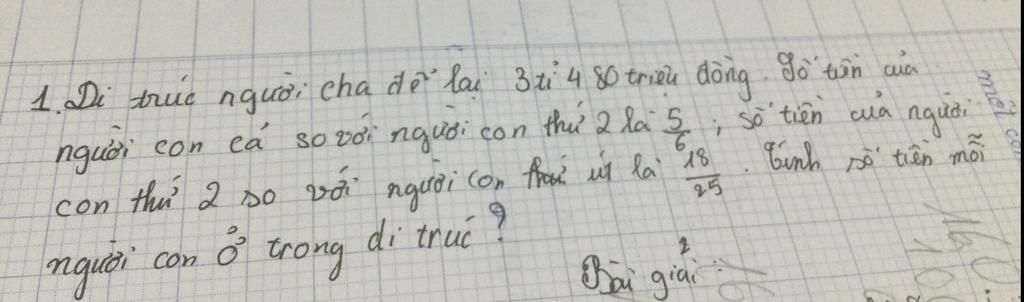 1. Di trúc người cha để lại 3 tỉ 480 triệu đồng. Số tiền của
người con cả so với người con thứ 2 là 5/6 ; số tiền của người
con thứ 2 so với người con út là 18/25. Tính số tiền mỗi
người con ở trong di trúc ?
Bài giải :